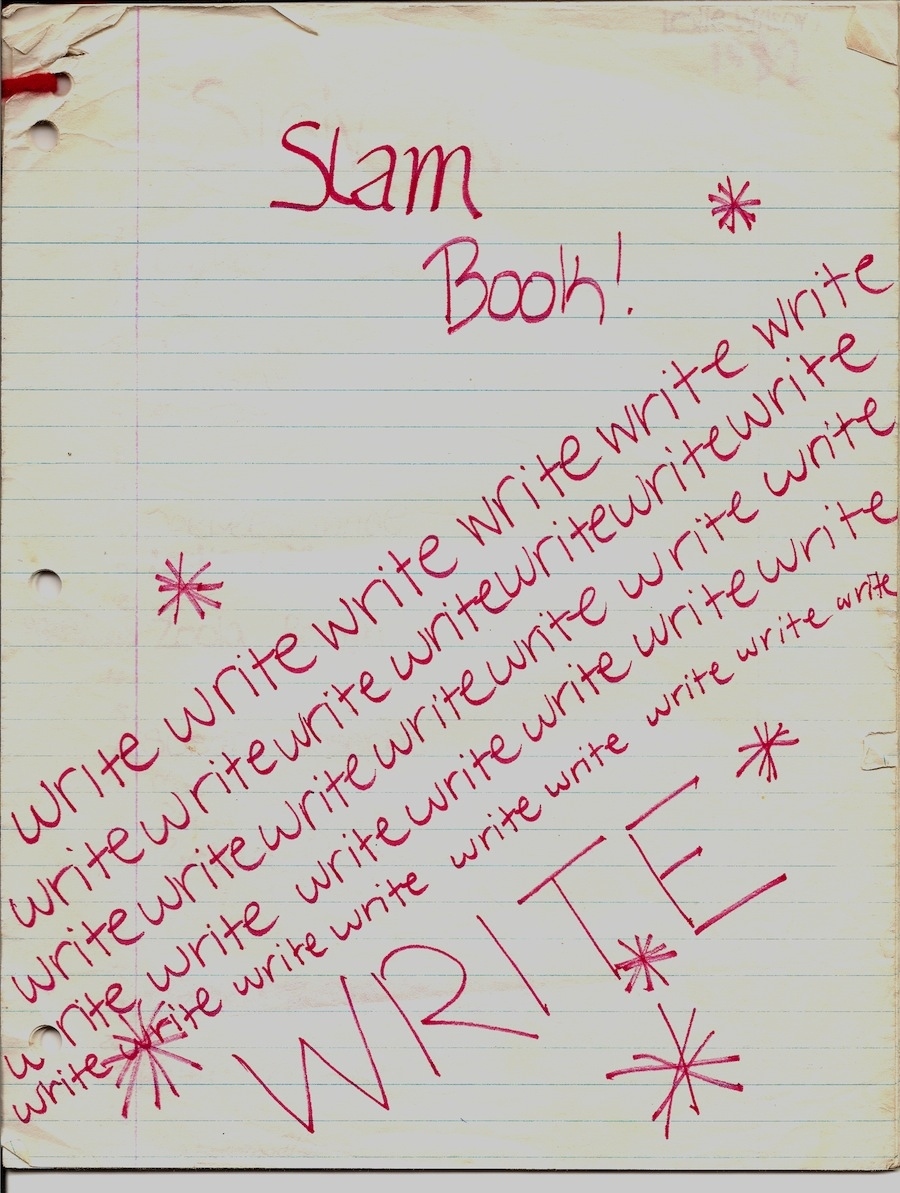 Slam
Book!
write write write write write write
write write write write write write write
write write write write write write write
write write write write write write write
write write write write write write write write write
WRITE